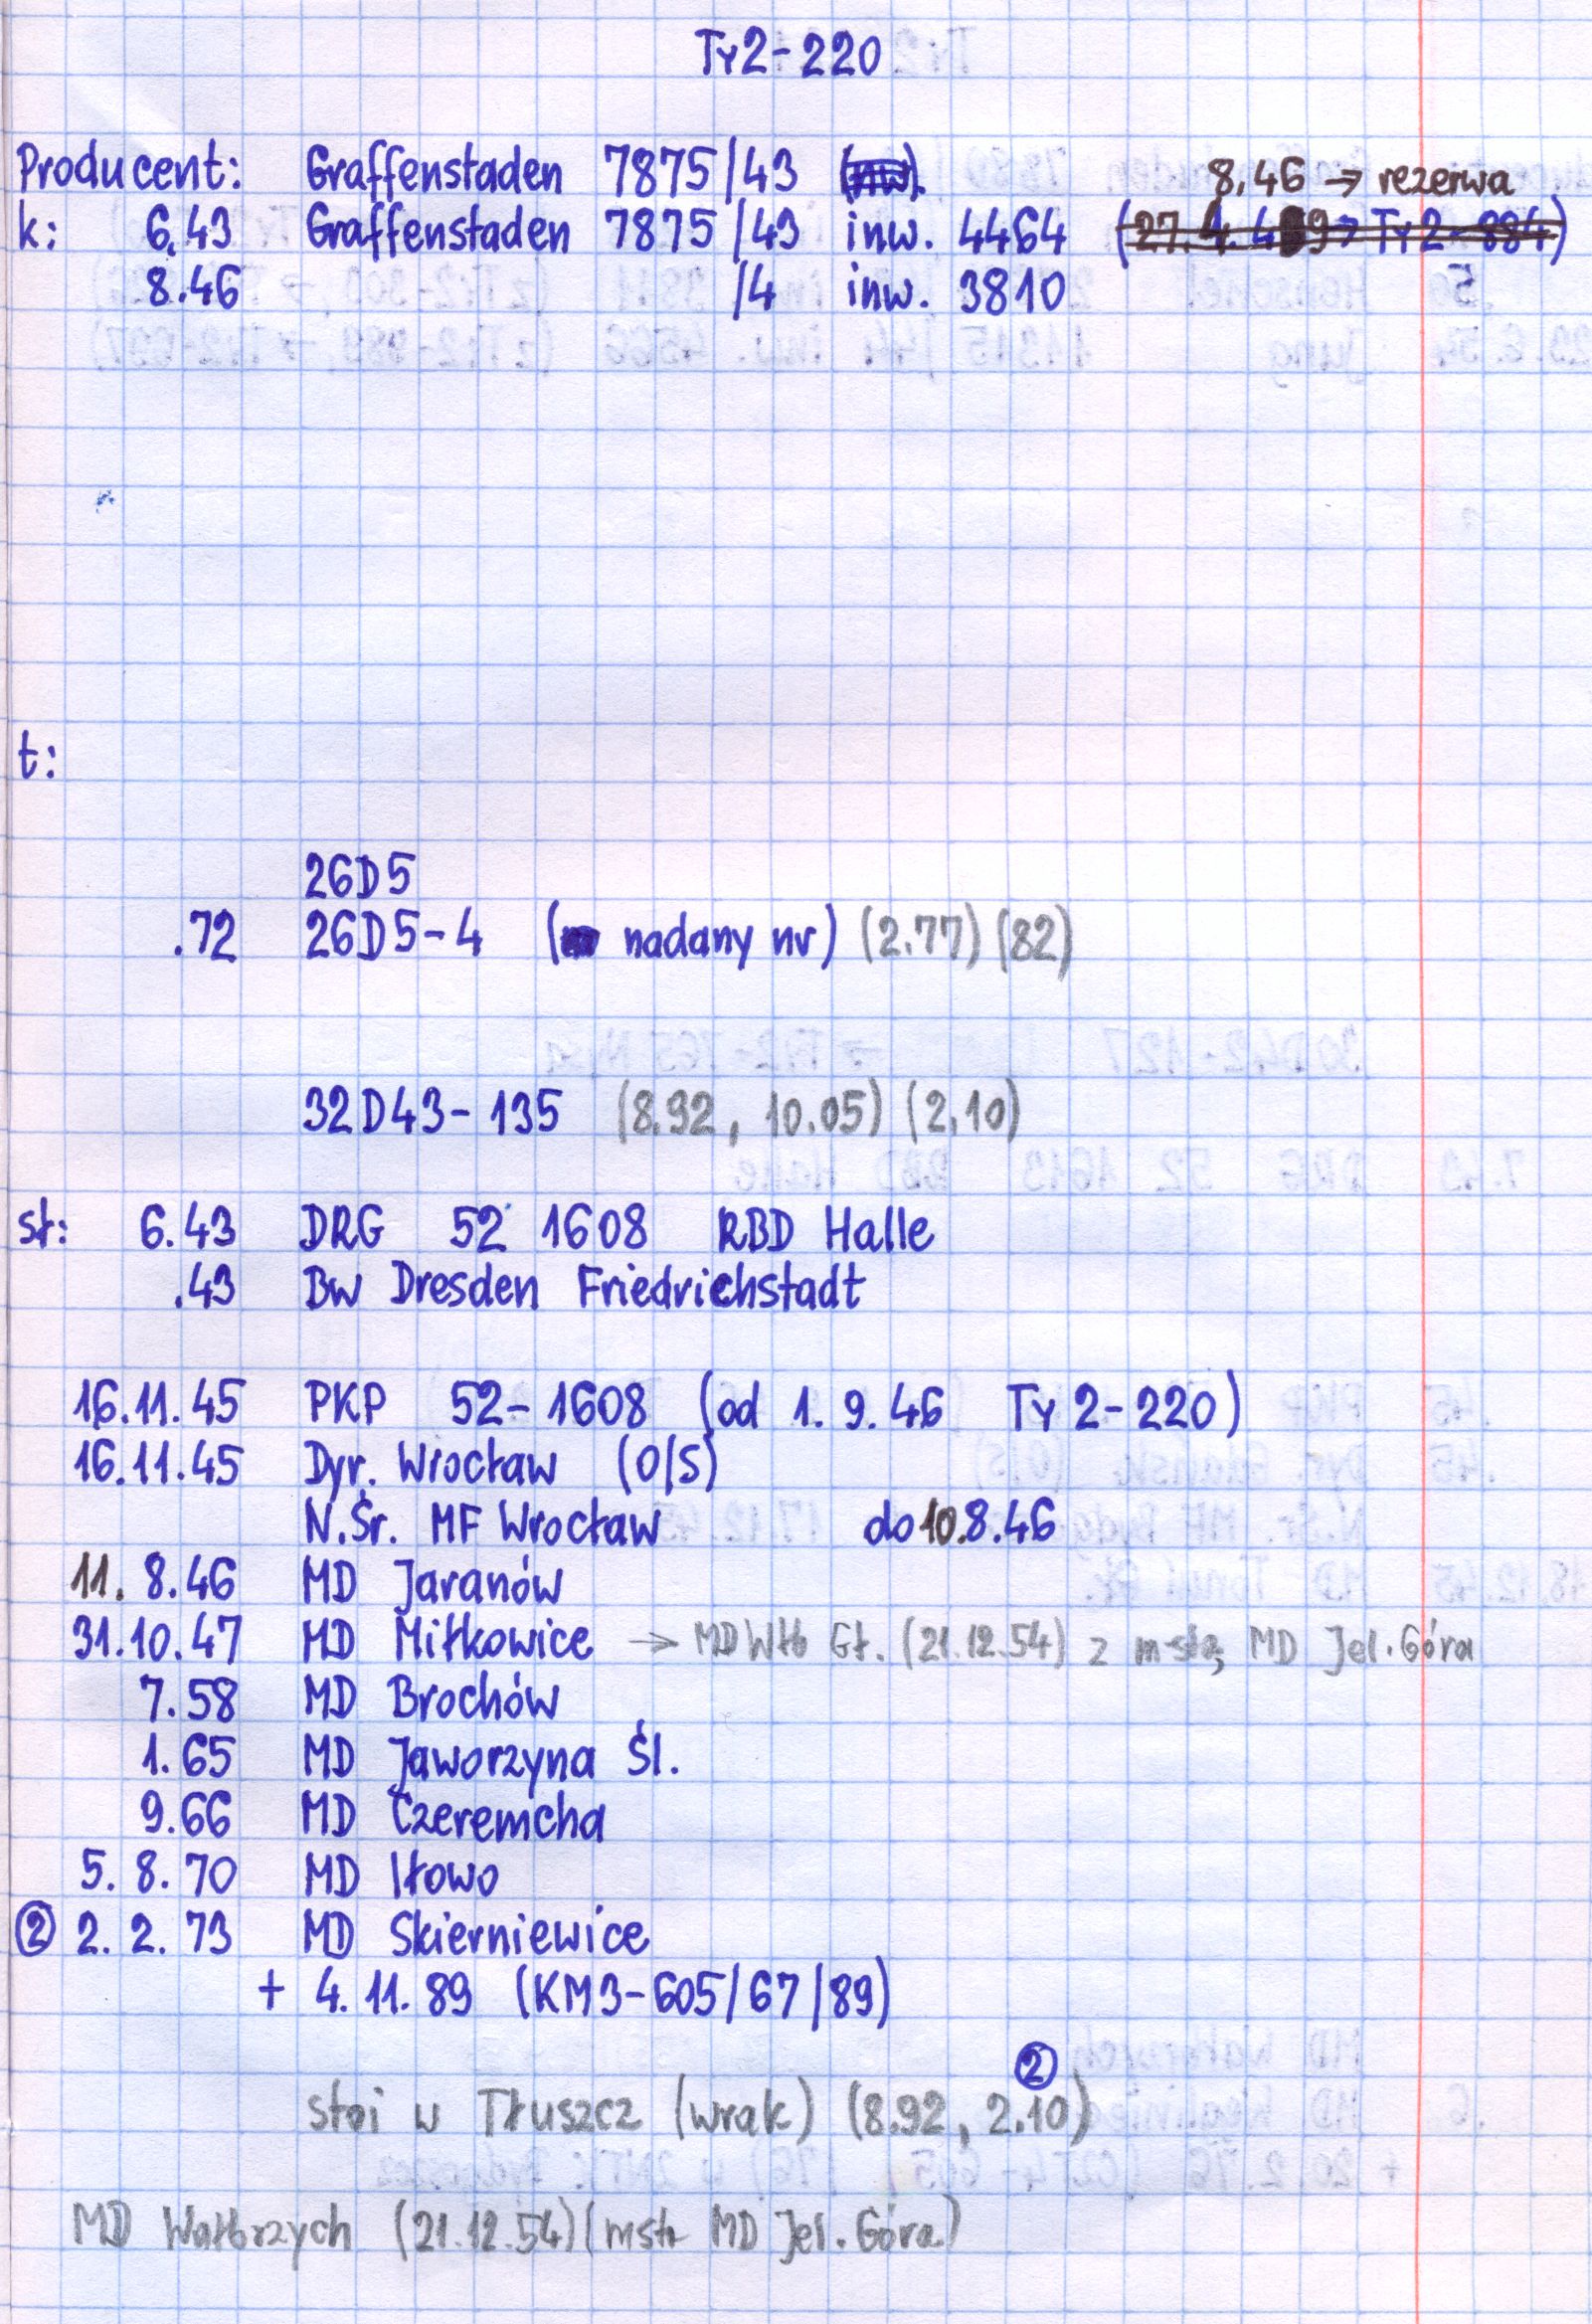 Ty2-220
Producent: Graffenstaden 7875/43
8.46 → rezerwa
k: 6.43 Graffenstaden 7875/43 inw. 4464 (27.4.49→ Ty2-884)
8.46 /4 inw. 3810
t:
26D5
.72 26D5-4 (nadany nr) (2.77) (82)
32D43-135 (8.92, 10.05) (2.10)
st: 6.43 DRG 52 1608 RBD Halle
.43 Bw Dresden Friedrichstadt
16.11.45 PKP 52-1608 (od 1.9.46 Ty2-220)
16.11.45 Dyr. Wrocław (O/S)
N.Śr. MF Wrocław do 10.8.46
11. 8.46 MD Jaranów
31.10.47 MD Miłkowice → MD Włb Gł. (21.12.54) z MD Jel. Góra
7.58 MD Brochów
1.65 MD Jaworzyna Śl.
9.66 MD Czeremcha
5. 8. 70 MD Iłowo
② 2. 2. 73 MD Skierniewice
+ 4.11.89 (KM3-605/67/89)
②
stoi w Tłuszcz (wrak) (8.92, 2.10)
MD Wałbrzych (21.12.54) (MD Jel. Góra)